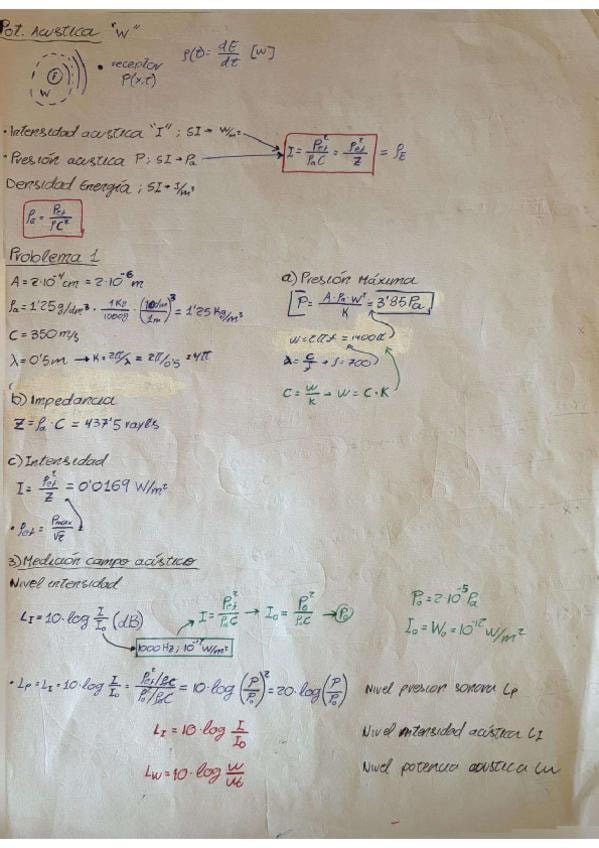 Pot. Acustica "W"
ρ(t) = dE/dt [W]
• receptor
P(x,t)
F
W
• Intensidad acustica "I" ; SI → W/m²
• Presión acustica P ; SI → Pa
I = Pef²/ρaC = Pef²/Z = ρE
Densidad Energía ; SI → J/m³
ρa = Pef/ρC²
Problema 1
A = 2·10⁻⁴cm = 2·10⁻⁶m
ρa = 1'25 g/dm³ · 1Kg/1000g · (10dm/1m)³ = 1'25 Kg/m³
C = 350 m/s
λ = 0'5m → K = 2π/λ = 2π/0'5 = 4π
a) Presión Máxima
P = A·ρa·W²/K = 3'85 Pa
w = 2πf = 1400π
λ = C/f → f = 700
C = w/k → w = C·K
b) Impedancia
Z = ρa · C = 437'5 rayls
c) Intensidad
I = Pef²/Z = 0'0169 W/m²
• Pef = Pmax/√2
3) Medición campo acústico
Nivel intensidad
LI = 10·log I/I₀ (dB)
1000 Hz; 10⁻¹² W/m²
I = Pef²/ρaC → I₀ = P₀²/ρaC → P₀
P₀ = 2·10⁻⁵ Pa
I₀ = W₀ = 10⁻¹² W/m²
• LP = LI = 10·log I/I₀ = Pef²/ρC / P₀²/ρC = 10·log (P/P₀)² = 20·log (P/P₀)
Nivel presion sonora Lp
LI = 10·log I/I₀
Nivel intensidad acústica LI
LW = 10·log
Nivel potencia acústica Lw